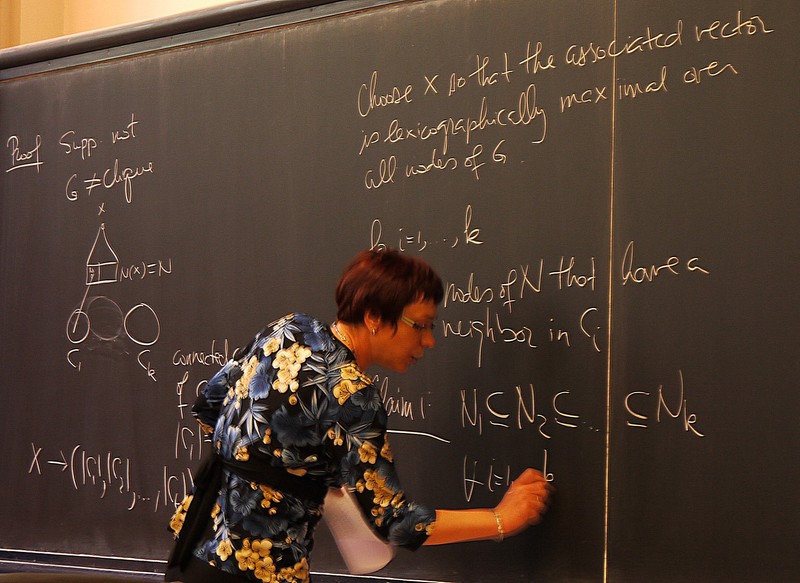 Proof Supp. not
G ≠ Clique
x
u y N(x) = N
C₁ Cₖ
connected
of
X → (|C₁|, |C₂|, ..., |C
Choose X so that the associated vector
is lexicographically maximal over
all nodes of G.
i=1,...,k
nodes of N that have a
neighbor in Cᵢ
Claim 1: N₁ ⊆ N₂ ⊆ ... ⊆ Nₖ
i=1,